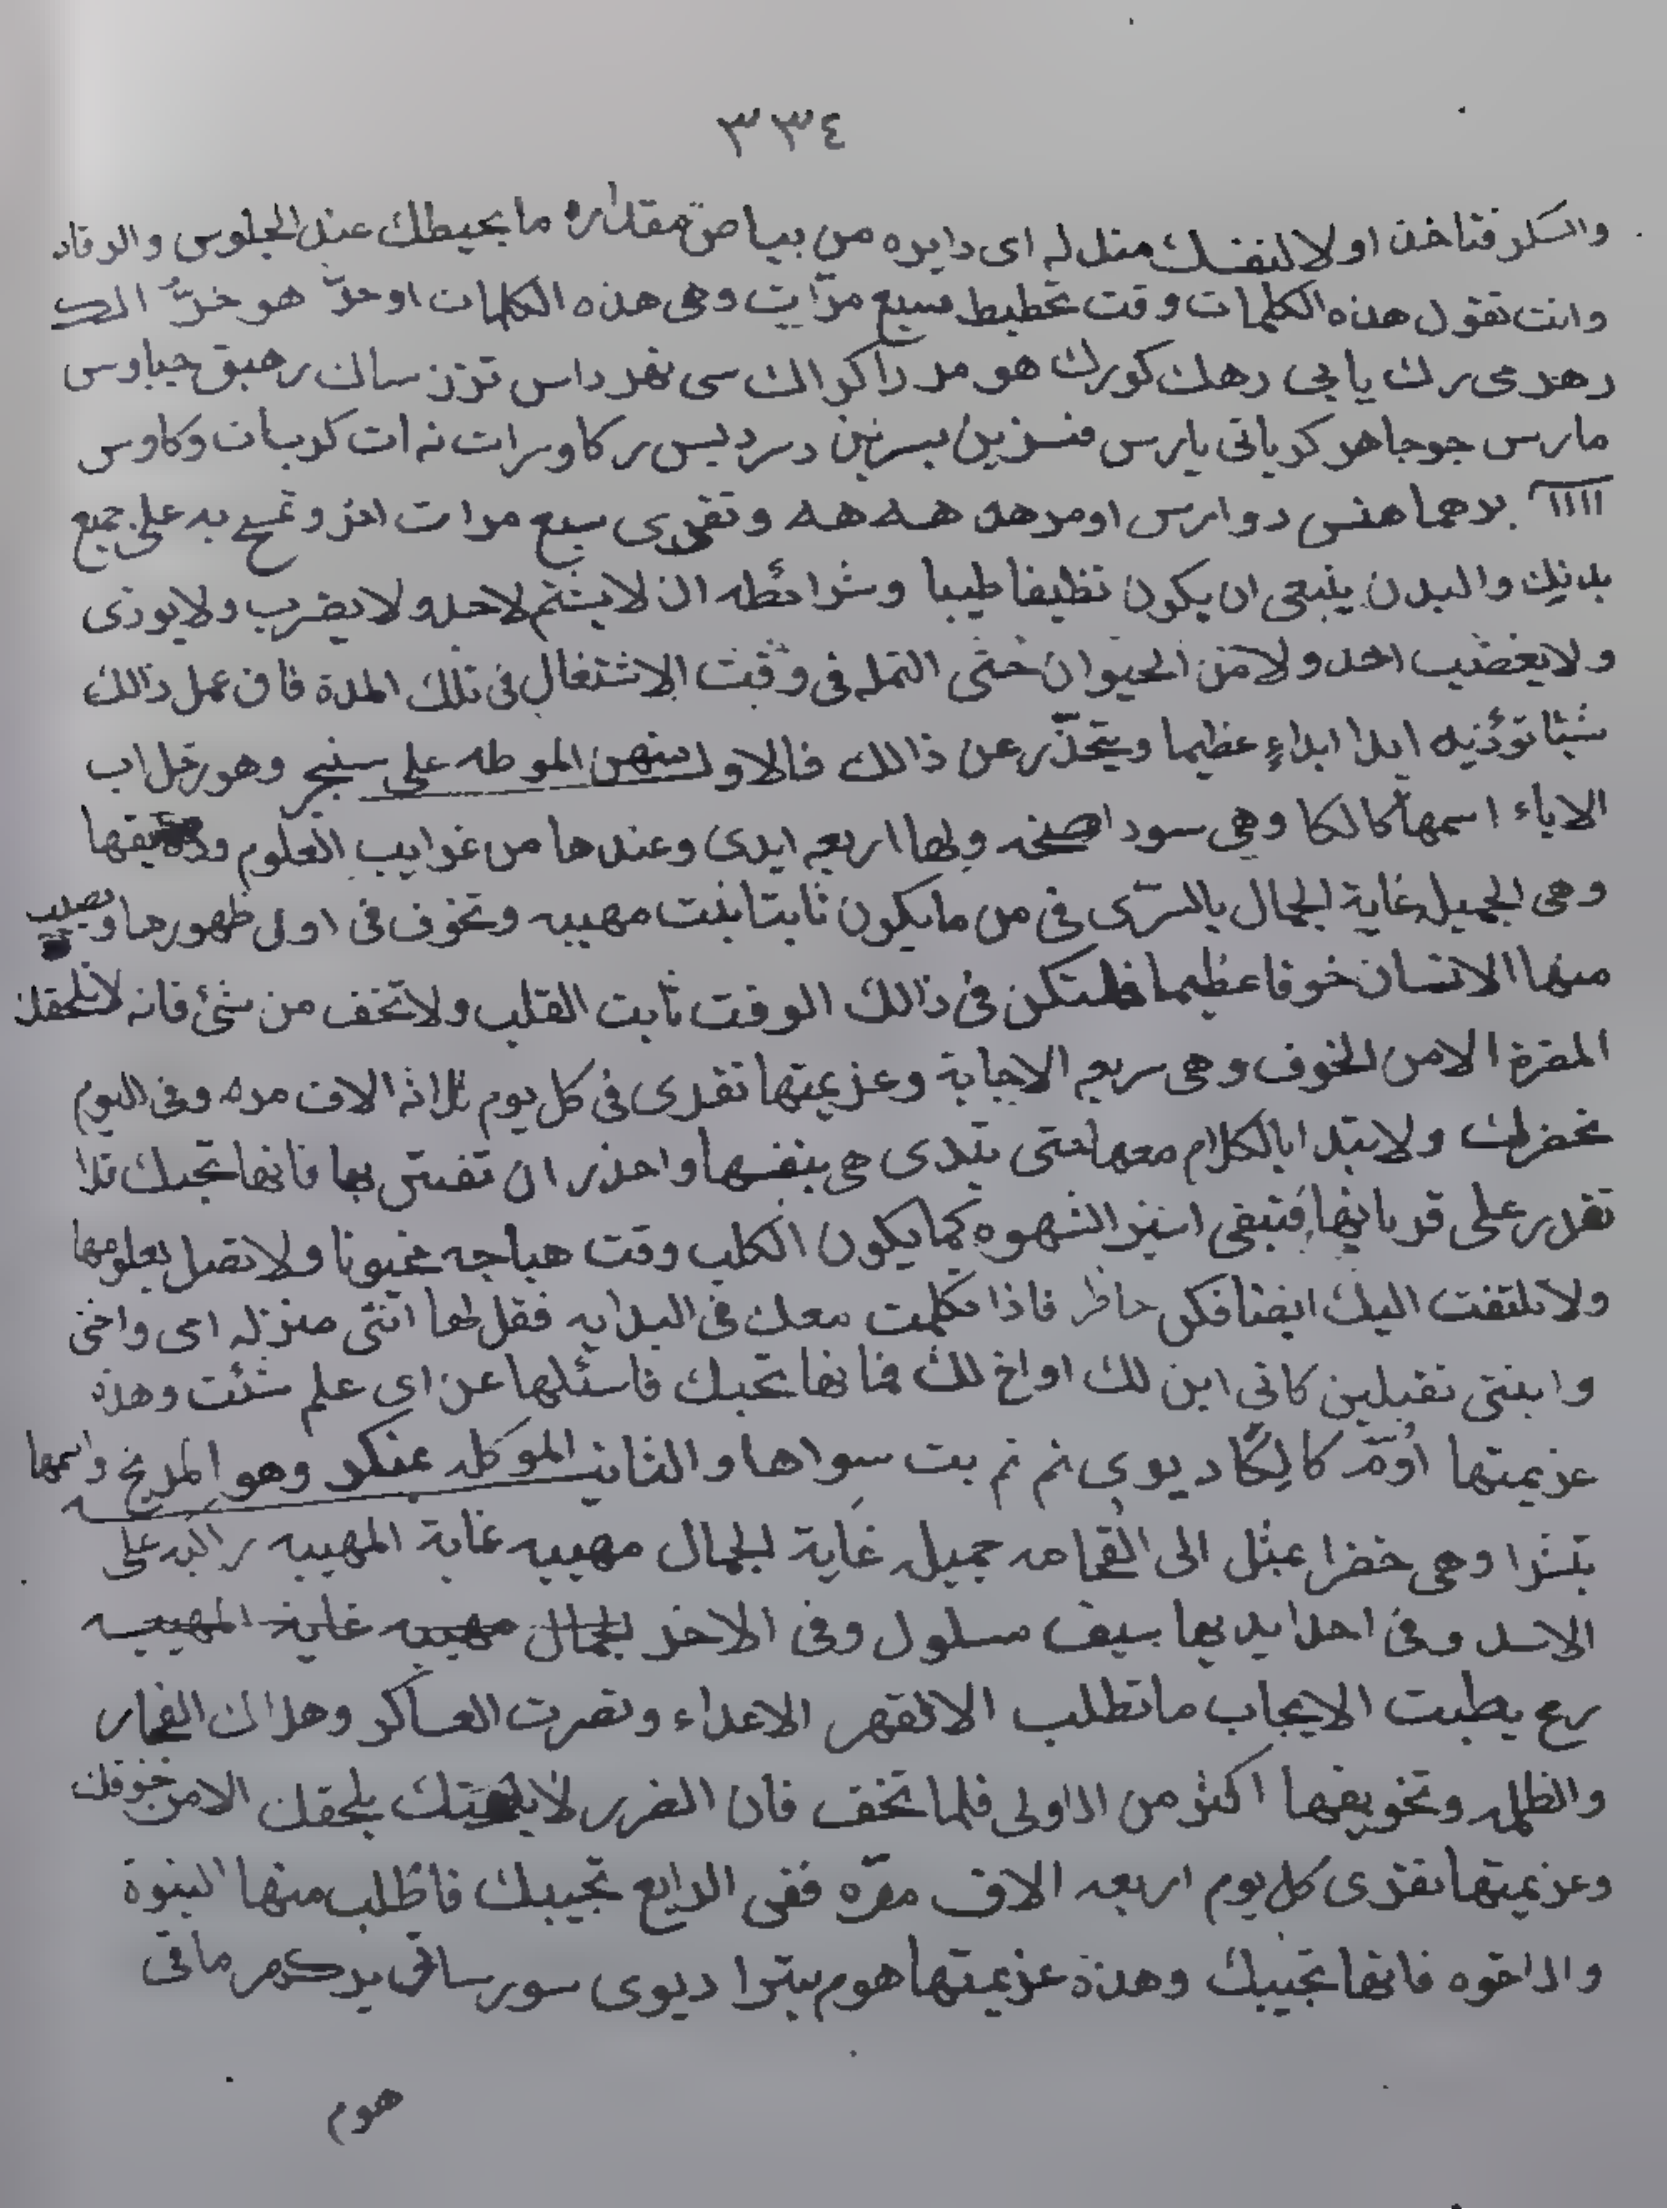 ٣٣٤
والسكر فتاخذ اولا لنفسك مندله اى دايره من بياض مقداره ما يحيطك عند الجلوس والرقاد
وانت تقول هذه الكلمات وقت تخطيط سبع مرات وهى هذه الكلمات اوحد هو خر
رهد مى رك يابى رهك كورك هو مد را كراك سى نفر داس ترز ساك رهبق جباوس
مارس جوجا هو كرياتى يارس منزين بسرنين درديس ركاورات نه ات كربات وكاوس
برهما هنس دوارس اومر هد هه هه وتقرى سبع مرات اخر وتمسح به على جميع
بدنك والبدن ينبغى ان يكون نظيفا طيبا وشرائطه ان لا يشتم لاحد ولا يضرب ولا يوذى
ولا يغضب احد ولا من الحيوان حتى النمله فى وقت الاشتغال فى تلك المدة فان عمل ذالك
شيئا توذيه ايدا ايداء عظيما ويتحذر عن ذالك فالاول منهن الموطه على سنيجر وهو زحل اب
الاباء اسمها كالكا وهى سودا ولها اربعه ايدى وعندها من غرايب العلوم
وهى الجميله غاية الجمال بالسرى فى من ما يكون ثابتا بنت مهيبه وتخوف فى اول ظهورها ويصيب
منها الانسان خوفا عظيما فلتكن فى ذالك الوقت ثابت القلب ولا تخف من شئ فانه لا تلحقك
المضرة الا من الخوف وهى سريعه الاجابة وعزيمتها تقرى فى كل يوم ثلاثه الاف مره وفى اليوم
تحضرلك ولا تبتدا بالكلام معها حتى تبتدى هى بنفسها واحذر ان تفتتن بها فانها تحبك
تقدر على قربانها فتبقى اسير الشهوه كما يكون الكلب وقت هياجه مجنونا ولا تصل بعلومها
ولا تلتفت اليك ايضا فكن حاظر فاذا تكلمت معك فى البدايه فقل لها انتى منزله امى واختى
وابنتى تقبلين كانى ابن لك او اخ لك فانها تحبك فاسئلها عن اى علم شئت وهذه
عزيمتها اوم كالكا ديوى نم نم بت سواها والثانيه الموكله عنكر وهو المريخ واسمها
بتنرا وهى خضرا تمثل الى القمامه جميله غاية الجمال مهيبه غاية المهيبه راكبه على
الاسد وفى احدا يديها سيف مسلول وفى الاخر الجمال مهيبه غاية المهيبه
رمح يطبت الايجاب ما تطلب الا لقهر الاعداء ونصرت العساكر وهلاك الفجار
والظلمه وتخويفها اكثر من الاولى فلما تخف فان الضرر يلحقك الا من خوفك
وعزيمتها تقرى كل يوم اربعه الاف مره ففى الرابع تجيبك فاطلب منها البنوة
والاخوه فانها تجيبك وهذه عزيمتها هوم بيترا ديوى سور ساقى يد كرم ماقى
هوم